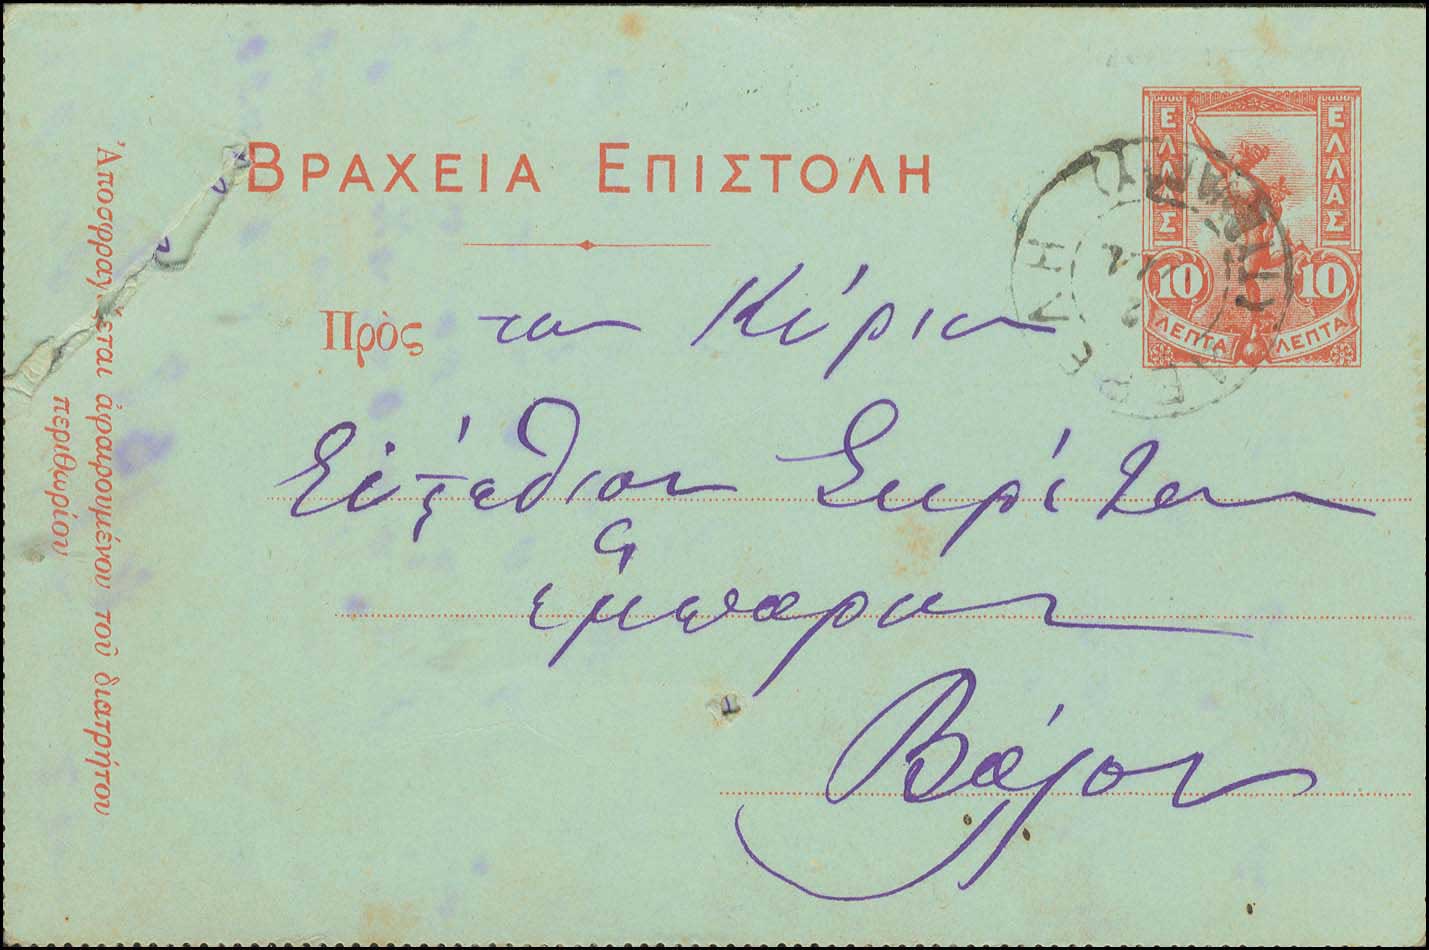 ΒΡΑΧΕΙΑ ΕΠΙΣΤΟΛΗ
ΕΛΛΑΣ
ΕΛΛΑΣ
10
10
ΛΕΠΤΑ
ΛΕΠΤΑ
Πρὸς τον Κύριον
Εὐστάθιον
ἔμπορον
Βόλον
Ἀποσφραγίζεται ἀφαιρουμένου τοῦ διατρήτου
περιθωρίου